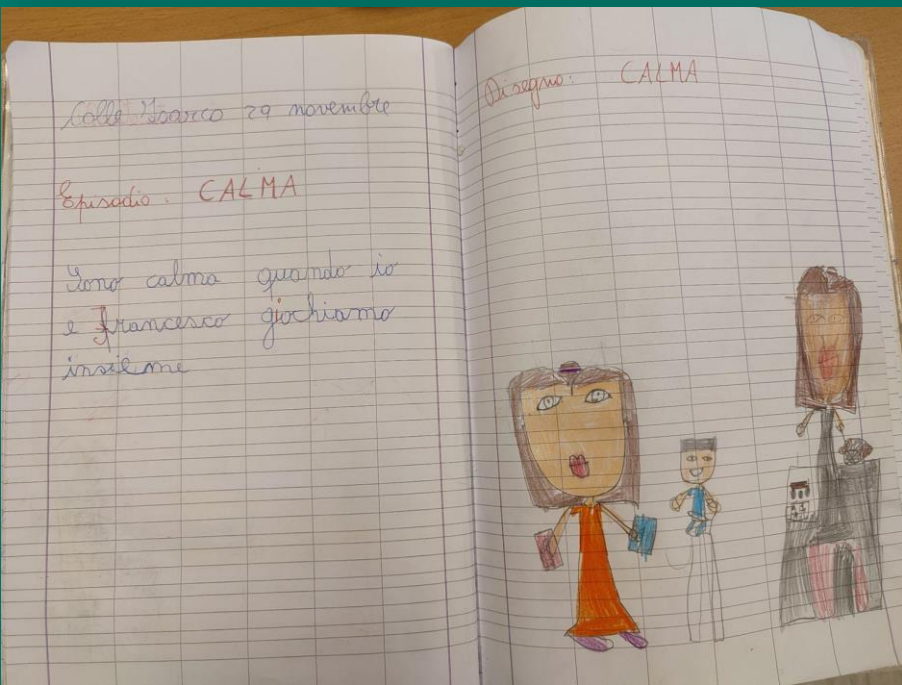 Colle Isarco 29 novembre
Episodio: CALMA
Sono calma quando io
e francesco giochiamo
insieme
Disegno: CALMA